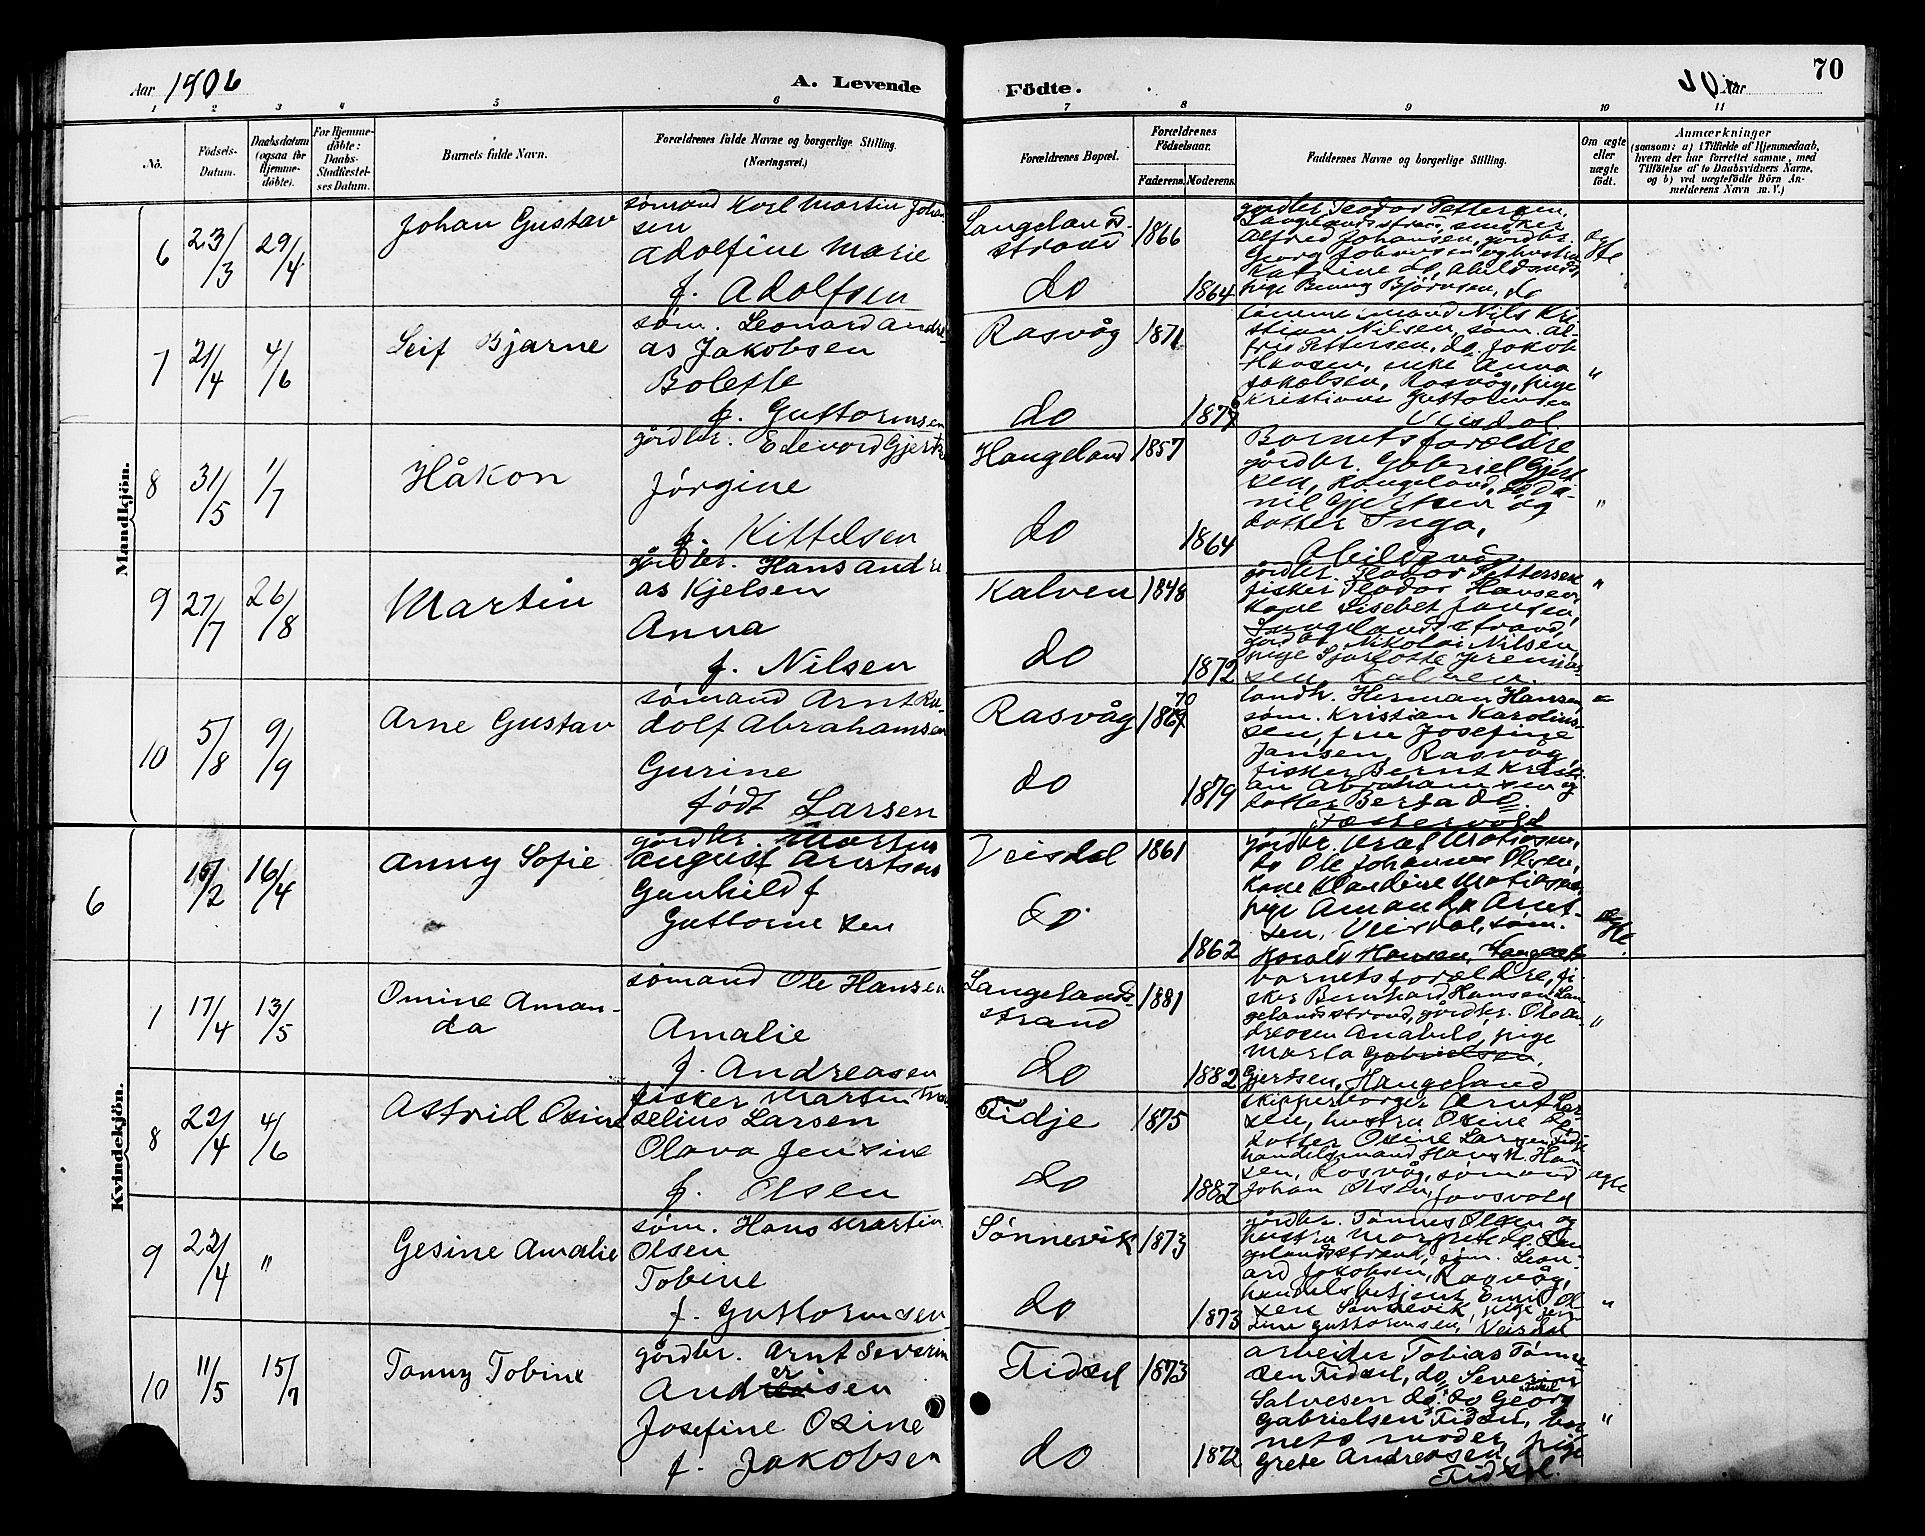 Aar 1906
A. Levende
Födte.
70
1 2 3 4 5 6 7 8 9 10 11
No.
Födsels-Datum.
Daabsdatum (ogsaa for Hjemmedöbte).
For Hjemmedöbte: Daabs-Stadfæstelses Datum.
Barnets fulde Navn.
Forældrenes fulde Navne og borgerlige Stilling. (Næringsvei.)
Forældrenes Bopæl.
Forældrenes Födselsaar.
Faderens. Moderens.
Faddernes Navne og borgerlige Stilling.
Om ægte eller uægte födt.
Anmærkninger
(saasom: a) i Tilfælde af Hjemmedaab, hvem der har forrettet samme, med Tilföielse af to Daabsvidners Navne, og b) ved uægtefödte Börn Anmelderens Navn m. V.)
Mandkjön.
6 23/3 29/4 Johan Gustav
sömand Karl Martin Johan-
sen
Adolfine Marie
f. Adolfsen
Langelands-
strand 1866
do 1864
gårdbr. Teodor Pettersen,
Langelandsstrand, snedker
Alfred Johansen, gårdbr.
Georg Johansen og hustru
Katrine do,
pige Benny Björnsen, do
ægte
7 21/4 4/6 Leif Bjarne
söm. Leonard Andre-
as Jakobsen
Bolette
f. Guttormsen
Rasvåg 1871
do 1879
tömmermand Nils Kri-
stian Nilsen, söm. Al-
fred Pettersen, do. Jakob
Hansen, enke Anna
Jakobsen, Rasvåg, pige
Kristiane Guttormsen
Veisdal
"
8 31/5 1/7 Håkon
gårdbr. Edevard Gjertsen
Jörgine
f. Kittelsen
Haugeland 1857
do 1864
Barnets forældre
gårdbr. Gabriel Gjert-
sen, Haugeland, do Da-
niel Gjertsen og
datter Inga,
Abildsvåg
"
9 27/7 26/8 Martin
gårdbr. Hans Andre
as Kjelsen
Anna
f. Nilsen
Kalven 1848
do 1872
gårdbr. Teodor Pettersen
fisker Teodor Hansen,
kone Lisebet Jansen,
Langelandsstrand,
gårdbr. Nikolai Nilsen,
pige Sjarlotte Jeremias-
sen Kalven.
"
10 5/8 9/9 Arne Gustav
sömand Arnt Ru-
dolf Abrahamsen
Gurine
födt Larsen
Rasvåg 1869 70
do 1879
landh. Herman Hansen,
söm. Kristian Karolius-
sen, fru Josefine
Jansen, Rasvåg,
fisker Bernt Kristi-
an Abrahamsen og
datter Berta do.
"
Kvindekjön.
6 15/2 16/4 Anny Sofie
gårdbr. Martin
August Arntsen
Gunhild f
Guttormsen
Veisdal 1861
do 1862
gårdbr. Aksel Matiasen,
do Ole Johannes Olsen,
kone Klandine Matiasen,
pige Amanda Arnt-
sen, Veisdal, söm.
Harald Hansen,
ægte.
1 17/4 13/5 Omine Aman-
da
sömand Ole Hansen
Amalie
f. Andreasen
Langelands-
strand 1881
do 1882
barnets forældre, fi-
sker Bernhard Hansen, Lan-
gelandsstrand, gårdbr. Ole An-
dreasen Anabelö, pige
Marta Gabrielsen,
Gjertsen, Haugeland
"
8 22/4 4/6 Astrid Osine
fisker Martin Mar-
selius Larsen
Olava Jensine
f. Olsen
Tidje 1875
do 1882
skipperborger Arnt Lar-
sen, hustru Osine og
datter Osine Larsen Tidje
handelsmand Hans N. Han-
sen, Rasvåg, sömand
Johan Olsen, Josvold
ægte
9 22/4 " Gesine Amalie
söm. Hans Martin
Olsen
Tobine
f. Guttormsen
Sönnevik 1873
do 1873
gårdbr. Tönnes Olsen og
hustru Margrete do. Lan-
gelandsstrand, söm. Leon-
ard Jakobsen, Rasvåg,
handelsbetjent Emil Ol-
sen Sönnevik, pige Jen-
sine Guttormsen, Veisdal
"
10 11/5 15/7 Tanny Tobine
gårdbr. Arnt Severin
Andersen
Josefine Osine
f. Jakobsen
Fidsel 1873
do 1872
arbeider Tobias Tönne-
sen Fidsel, do Severin
Salvesen do, do Georg
Gabrielsen Fidsel, bar-
nets moder, pige
Grete Andreasen,
Fidsel.
"